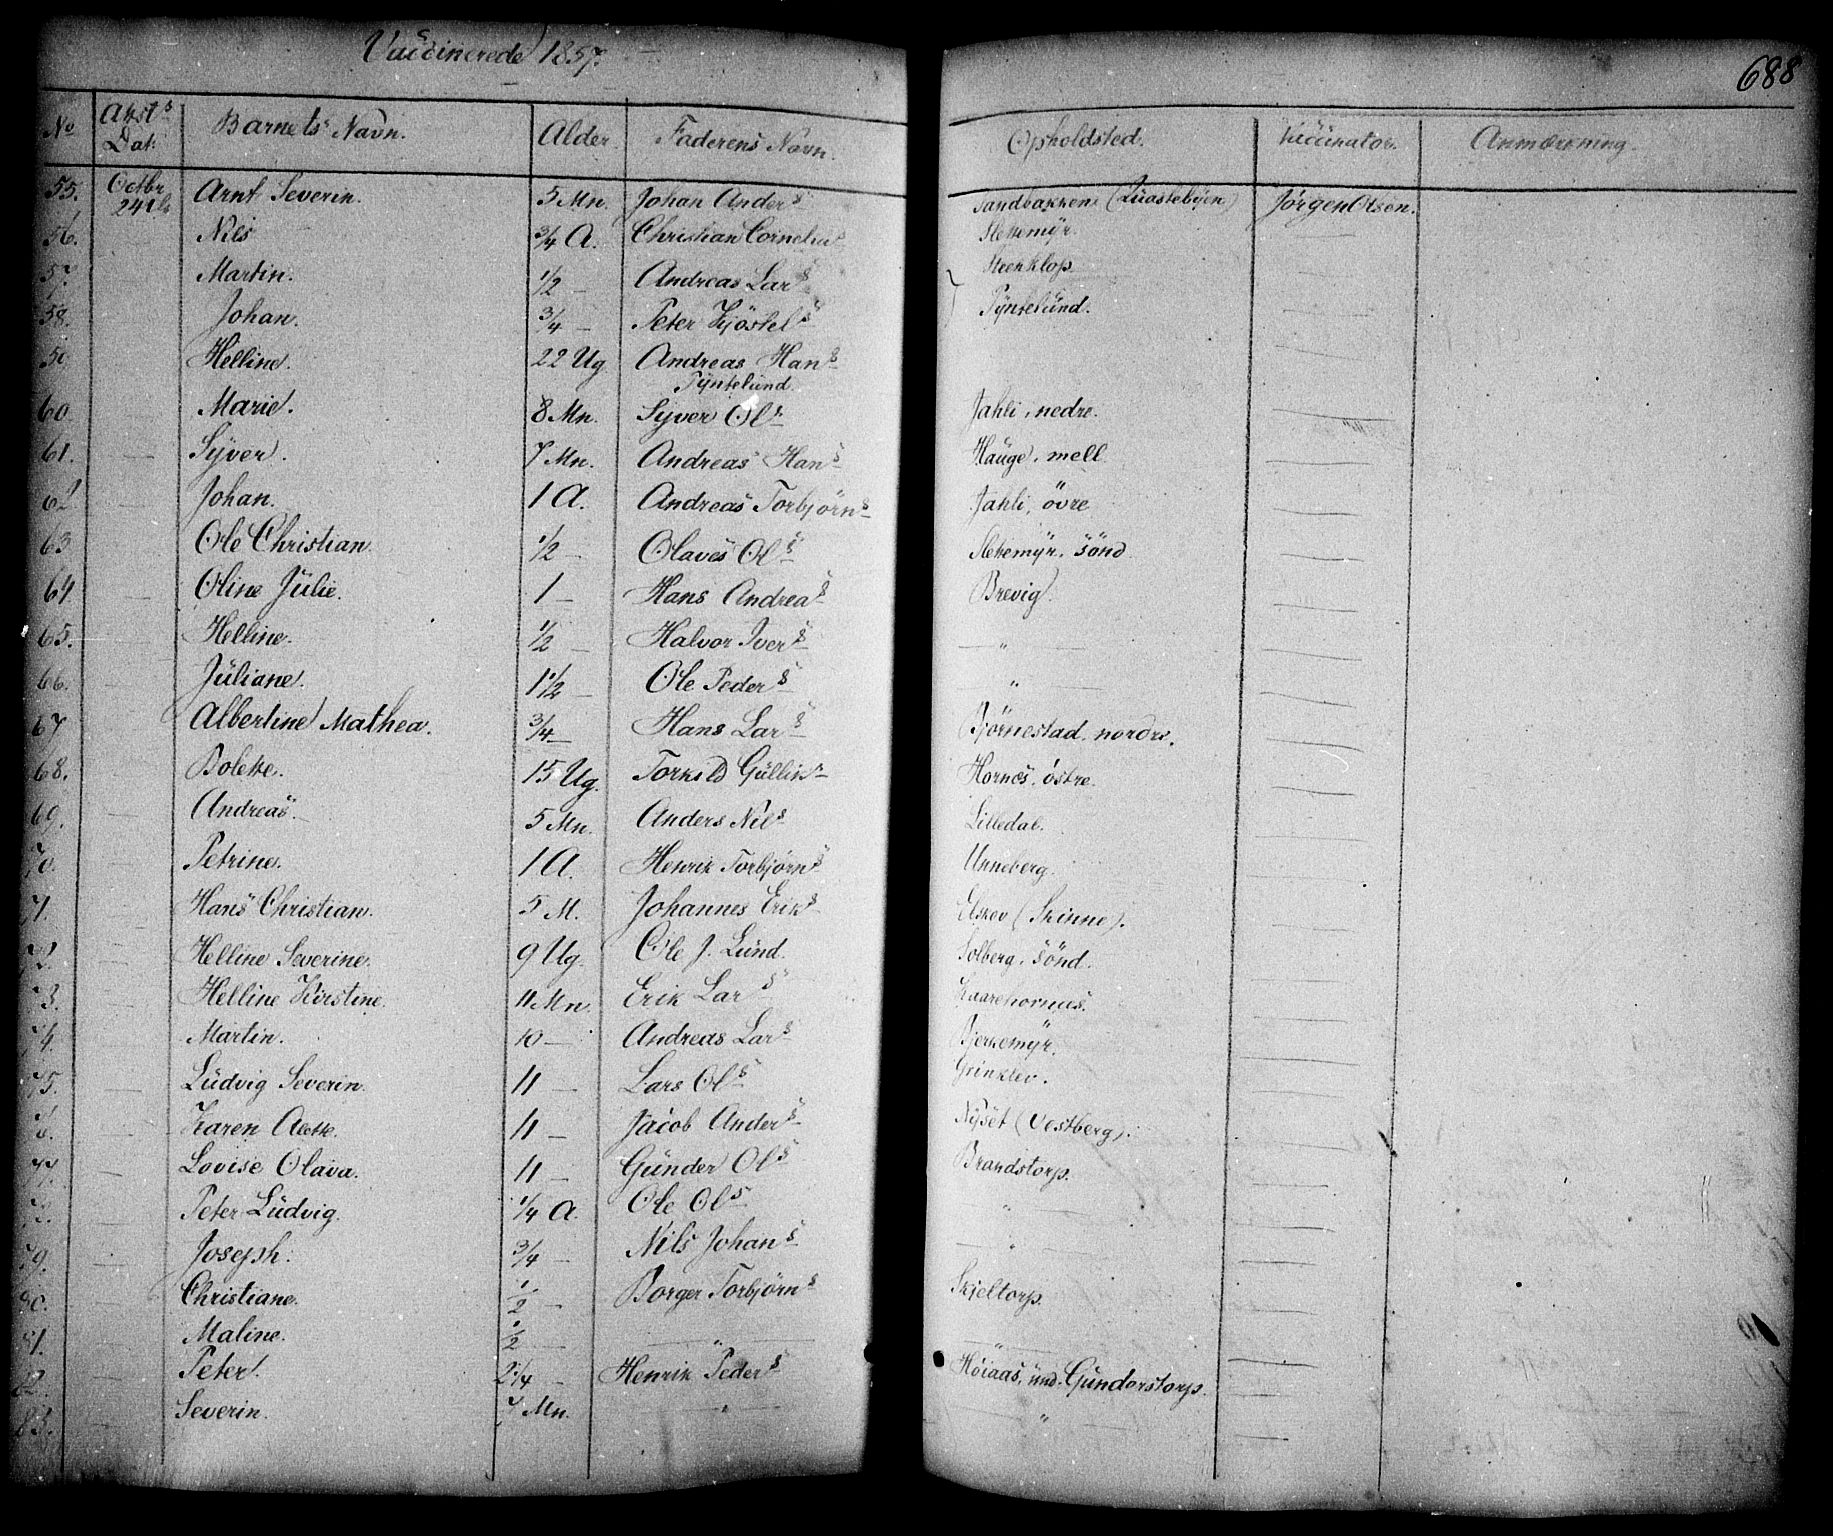 Vaccinerede 1857.
688
No Attst.s Dat: Barnets Navn. Alder. Faderens Navn. Opholdsted. Vaccinator. Anmærkning.
55. Octbr 24de Arnt Severin. 5 Mn. Johan Anders Sandbakken (Quastebyen) Jörgen Olsen.
56. Nils 3/4 A. Christian Cornelius Slettemÿr.
57. Martin. 1/2 — Andreas Lars Steenklop
58. Johan. 3/4 — Peter Kjöstels Tÿntelund.
59 Helline. 22 Ug Andreas Hans
Tÿntelund
60 Marie. 8 Mn. Syver Ols Jahli, nedre.
61. Syver. 7 Mn. Andreas Hans Hauge, mell
62 Johan. 1 A. Andreas Torbjörns Jahli, övre
63 Ole Christian 1/2 — Olaves Ols Slettemÿr, sönd
64 Oline Julie. 1 — Hans Andreas Brevig.
65. Helline. 1/2 — Halvor Ivers — " —
66. Juliane. 1 1/2 — Ole Peders " —
67 Albertine Mathea. 3/4 — Hans Lars Björnestad, nordre.
68. Bolette. 15 Ug. Torkild Gullik Hornes, östre.
69. Andreas. 5 Mn. Anders Nils Lilledal.
70. Petrine. 1 A. Henrik Torbjörns Unneberg.
71. Hans Christian. 5 M. Johannes Eriks Elskov (Skinne).
72. Helline Severine. 9 Ug. Ole J. Lund. Solberg, sönd.
73. Helline Kirstine. 11 Mn. Erik Lars Kaarehornes.
74. Martin. 10 — Andreas Lars Bjerkemÿr.
75. Ludvig Severin. 11 — Lars Ols Grinklev.
76. Karen Aette. 11 — Jacob Anders Nÿset (Vestberg).
77. Lovise Olava. 11 — Gunder Ols Brandstorp.
78. Peter Ludvig. 1/4 A. Ole Ols "
79. Joseph. 3/4 — Nils Johans — " —
80. Christiane. 1/2 — Borger Torbjörns Skjeltorp.
81. Maline. 1/2 — — " — "
82. Peter. 2 1/4 — Henrik Peders Höiaas, und. Gunderstorp.
83. Severin. 7 Mn. — " — — " —